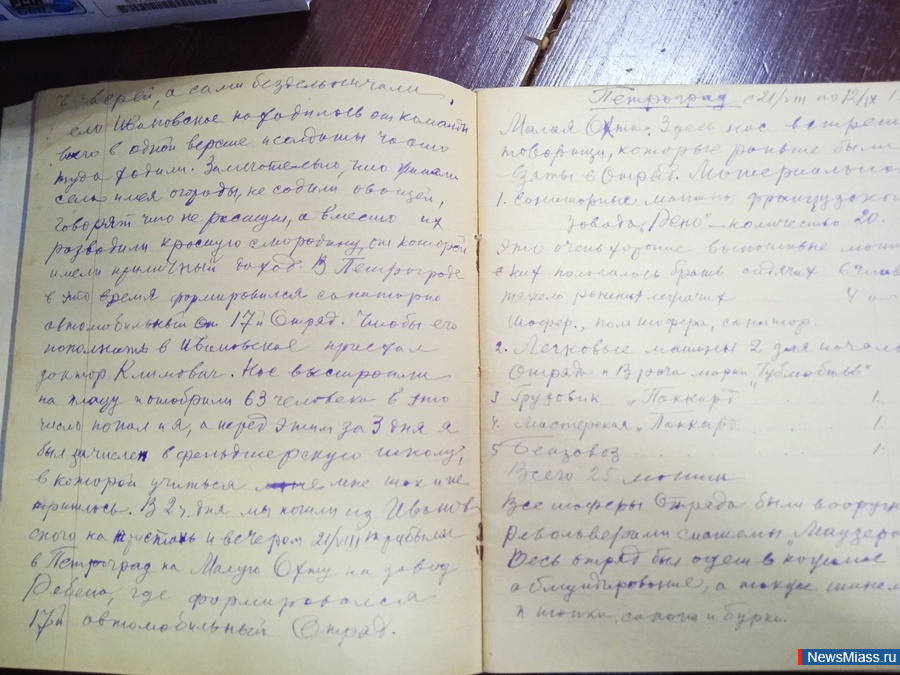 верей, а сами бездельничали.
село Ивановское находилось от команды
всего в одной версте и солдаты часто
туда ходили. Замечательно, что жители
села имея огороды, не садили овощей,
говорят что не растут, а вместо их
разводили красную смородину, от которой
имели приличный доход. В Петрограде
в это время формировался санитарно
автомобильный 17й Отряд. Чтобы его
пополнить в Ивановское приехал
доктор Климович. Нас выстроили
на плацу и отобрали 63 человека в это
число попал и я, а перед этим за 3 дня я
был зачислен в фельдшерскую школу,
в которой учиться мне так и не
пришлось. В 2ч. дня мы пошли из Иванов
ского на пристань и вечером 21/VIII прибыли
в Петроград на Малую Охту на завод
где формировался
17й автомобильный Отряд.
Петроград с 21/VIII по 12/IX 1
Малая Охта. Здесь нас встрети
товарищи, которые раньше были
взяты в Отряд. Материально
1. Санитарные машины французског
завода "Рено" – количество 20.
Это очень хорошие выносливые маши
в них полагалось брать сидячих 6 челов
тяжело раненых лежачих 4 —"—
Шофер, пом шофера, санитар.
2. Легковые машины 2 для началь
Отряда и Врача марки
3 Грузовик "Паккард" 1.
4. Мастерская "Паккард" 1.
5 Бензовоз 1.
Всего 25 машин
Все шоферы Отряда были вооруж
Револьверами системы Маузер
Весь отряд был одет в кожаное
обмундирование, а также шинел
сапоги и бурки.
NewsMiass.ru